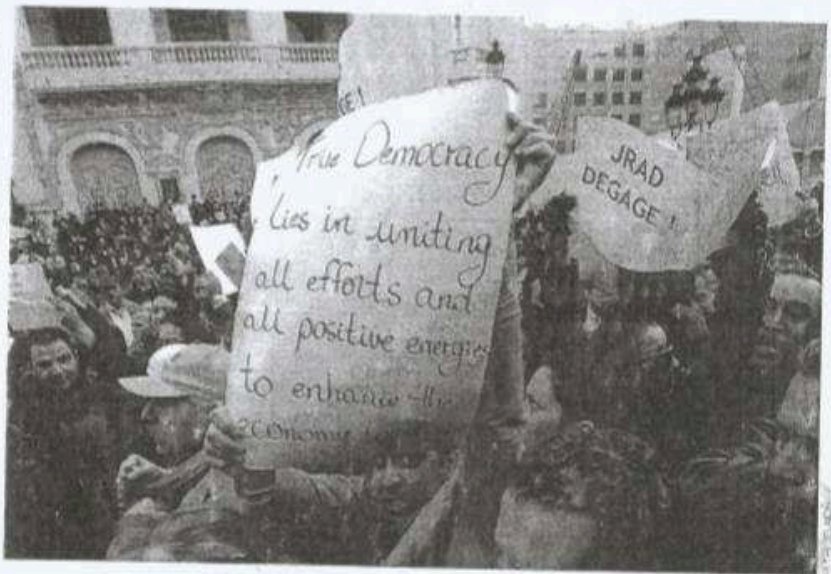 E!
True Democracy
lies in uniting
all efforts and
all positive energies
to enhance the
economy
JRAD
DEGAGE !